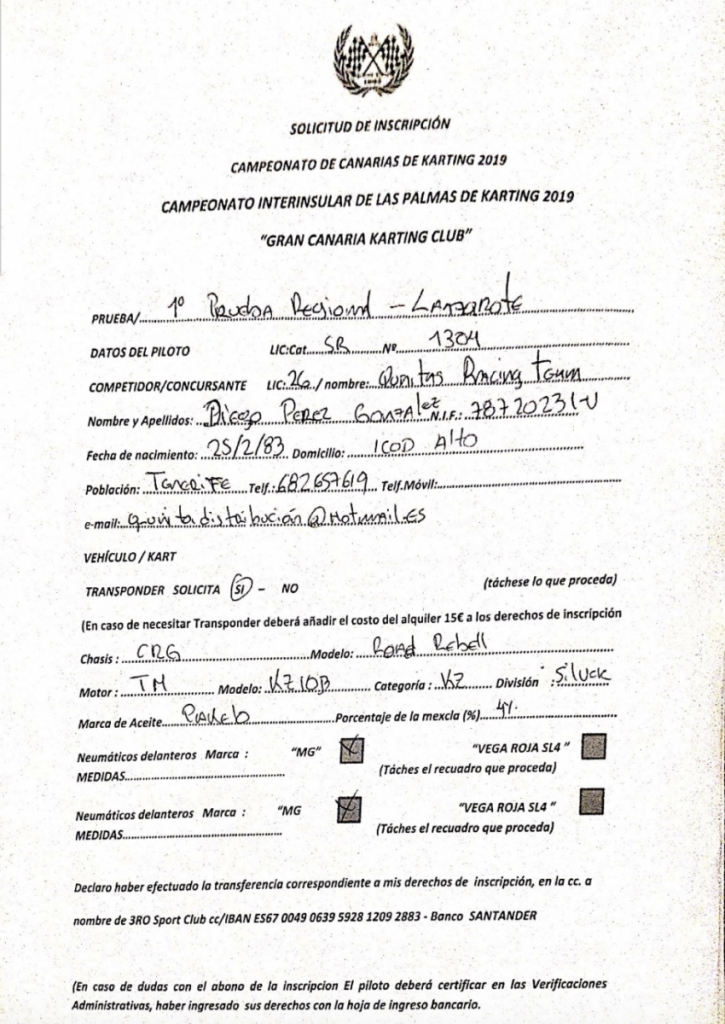 SOLICITUD DE INSCRIPCIÓN
CAMPEONATO DE CANARIAS DE KARTING 2019
CAMPEONATO INTERINSULAR DE LAS PALMAS DE KARTING 2019
"GRAN CANARIA KARTING CLUB"
PRUEBA/ 1º Prueba Regional - Lanzarote
DATOS DEL PILOTO LIC:Cat. SR Nº 1304
COMPETIDOR/CONCURSANTE LIC: 26 / nombre: Racing Team
Nombre y Apellidos: Diego Perez Gonzalez N.I.F.:
Fecha de nacimiento: 25/2/83 Domicilio: ICOD Alto
Población: Tenerife Telf.: 682657619 Telf.Móvil:
e-mail:
VEHÍCULO / KART
TRANSPONDER SOLICITA SI - NO (táchese lo que proceda)
(En caso de necesitar Transponder deberá añadir el costo del alquiler 15€ a los derechos de inscripción
Chasis : CRG Modelo: Road Rebell
Motor : TM Modelo: KZ10B Categoría : KZ División : Siluck
Marca de Aceite Porcentaje de la mexcla (%)
Neumáticos delanteros Marca : "MG" "VEGA ROJA SL4 "
MEDIDAS (Táches el recuadro que proceda)
Neumáticos delanteros Marca : "MG "VEGA ROJA SL4 "
MEDIDAS (Táches el recuadro que proceda)
Declaro haber efectuado la transferencia correspondiente a mis derechos de inscripción, en la cc. a
nombre de 3RO Sport Club cc/IBAN ES67 0049 0639 5928 1209 2883 - Banco SANTANDER
(En caso de dudas con el abono de la inscripcion El piloto deberá certificar en las Verificaciones
Administrativas, haber ingresado sus derechos con la hoja de ingreso bancario.